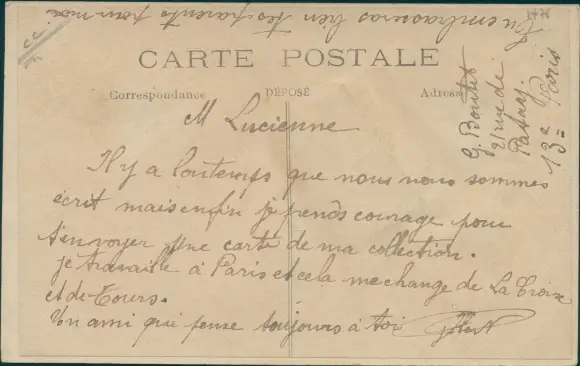 Tu embrasseras bien tes parents pour moi
CARTE POSTALE
Correspondance DÉPOSÉ Adresse
M Lucienne
Il y a lontemps que nous nous sommes
écrit mais enfin je prends courage pour
t'envoyer une carte de ma collection.
je travaille à Paris et cela me change de La Croix
et de Tours.
Un ami qui pense toujours à toi
G. Boutet
21 rue de
Patay.
13e Paris